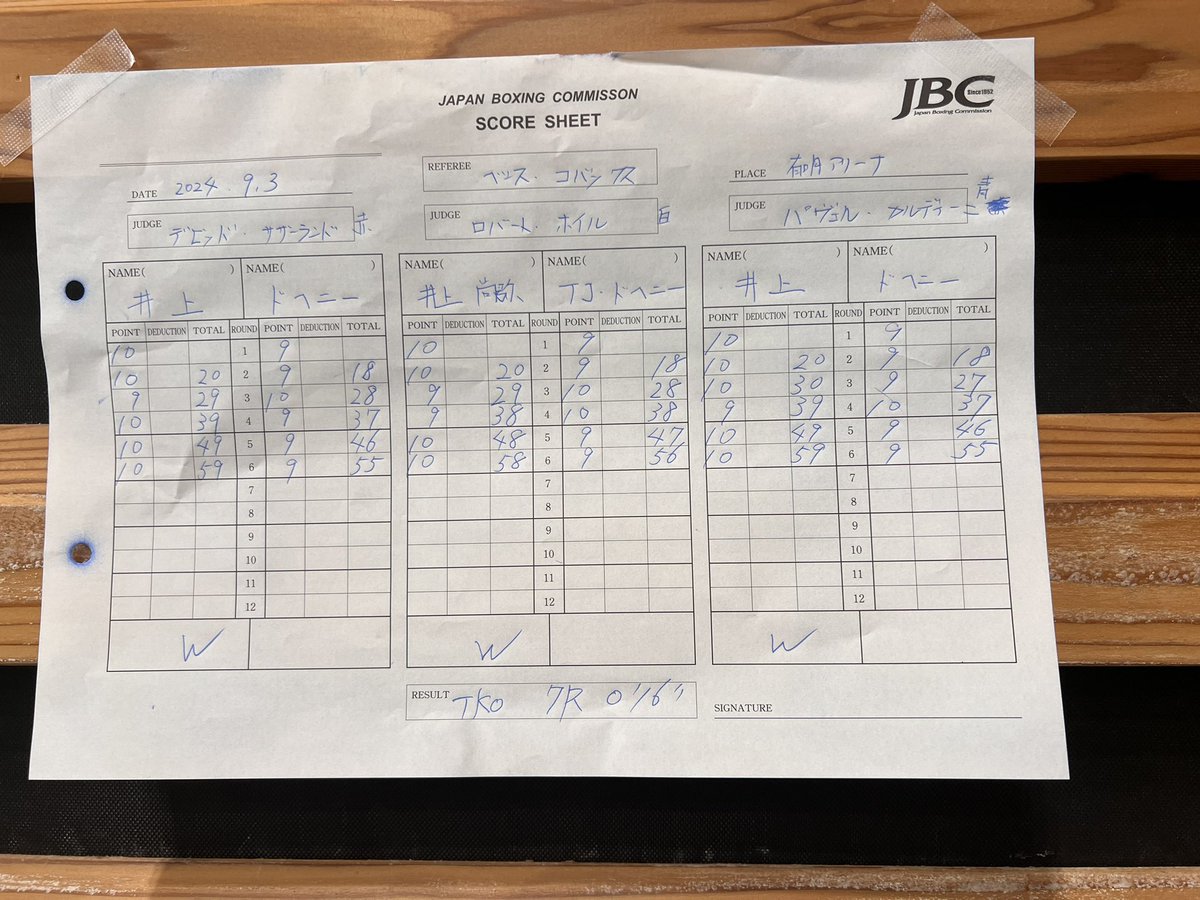 JAPAN BOXING COMMISSON
SCORE SHEET
JBC Since1952
Japan Boxing Commission
DATE 2024.9.3
REFEREE ベンス・コバックス
PLACE 有明アリーナ
JUDGE デビッド・サザーランド 赤
JUDGE ロバート・ホイル 白
JUDGE パヴェル・カルディーニ 青
NAME( ) NAME( ) NAME( ) NAME( ) NAME( ) NAME( )
井上 ドヘニー 井上 尚弥 TJ・ドヘニー 井上 ドヘニー
POINT DEDUCTION TOTAL ROUND POINT DEDUCTION TOTAL POINT DEDUCTION TOTAL ROUND POINT DEDUCTION TOTAL POINT DEDUCTION TOTAL ROUND POINT DEDUCTION TOTAL
10 1 9 10 1 9 10 1 9
10 20 2 9 18 10 20 2 9 18 10 20 2 9 18
9 29 3 10 28 9 29 3 10 28 10 30 3 9 27
10 39 4 9 37 9 38 4 10 38 9 39 4 10 37
10 49 5 9 46 10 48 5 9 47 10 49 5 9 46
10 59 6 9 55 10 58 6 9 56 10 59 6 9 55
7 7 7
8 8 8
9 9 9
10 10 10
11 11 11
12 12 12
W W W
RESULT TKO 7R 0'16"
SIGNATURE